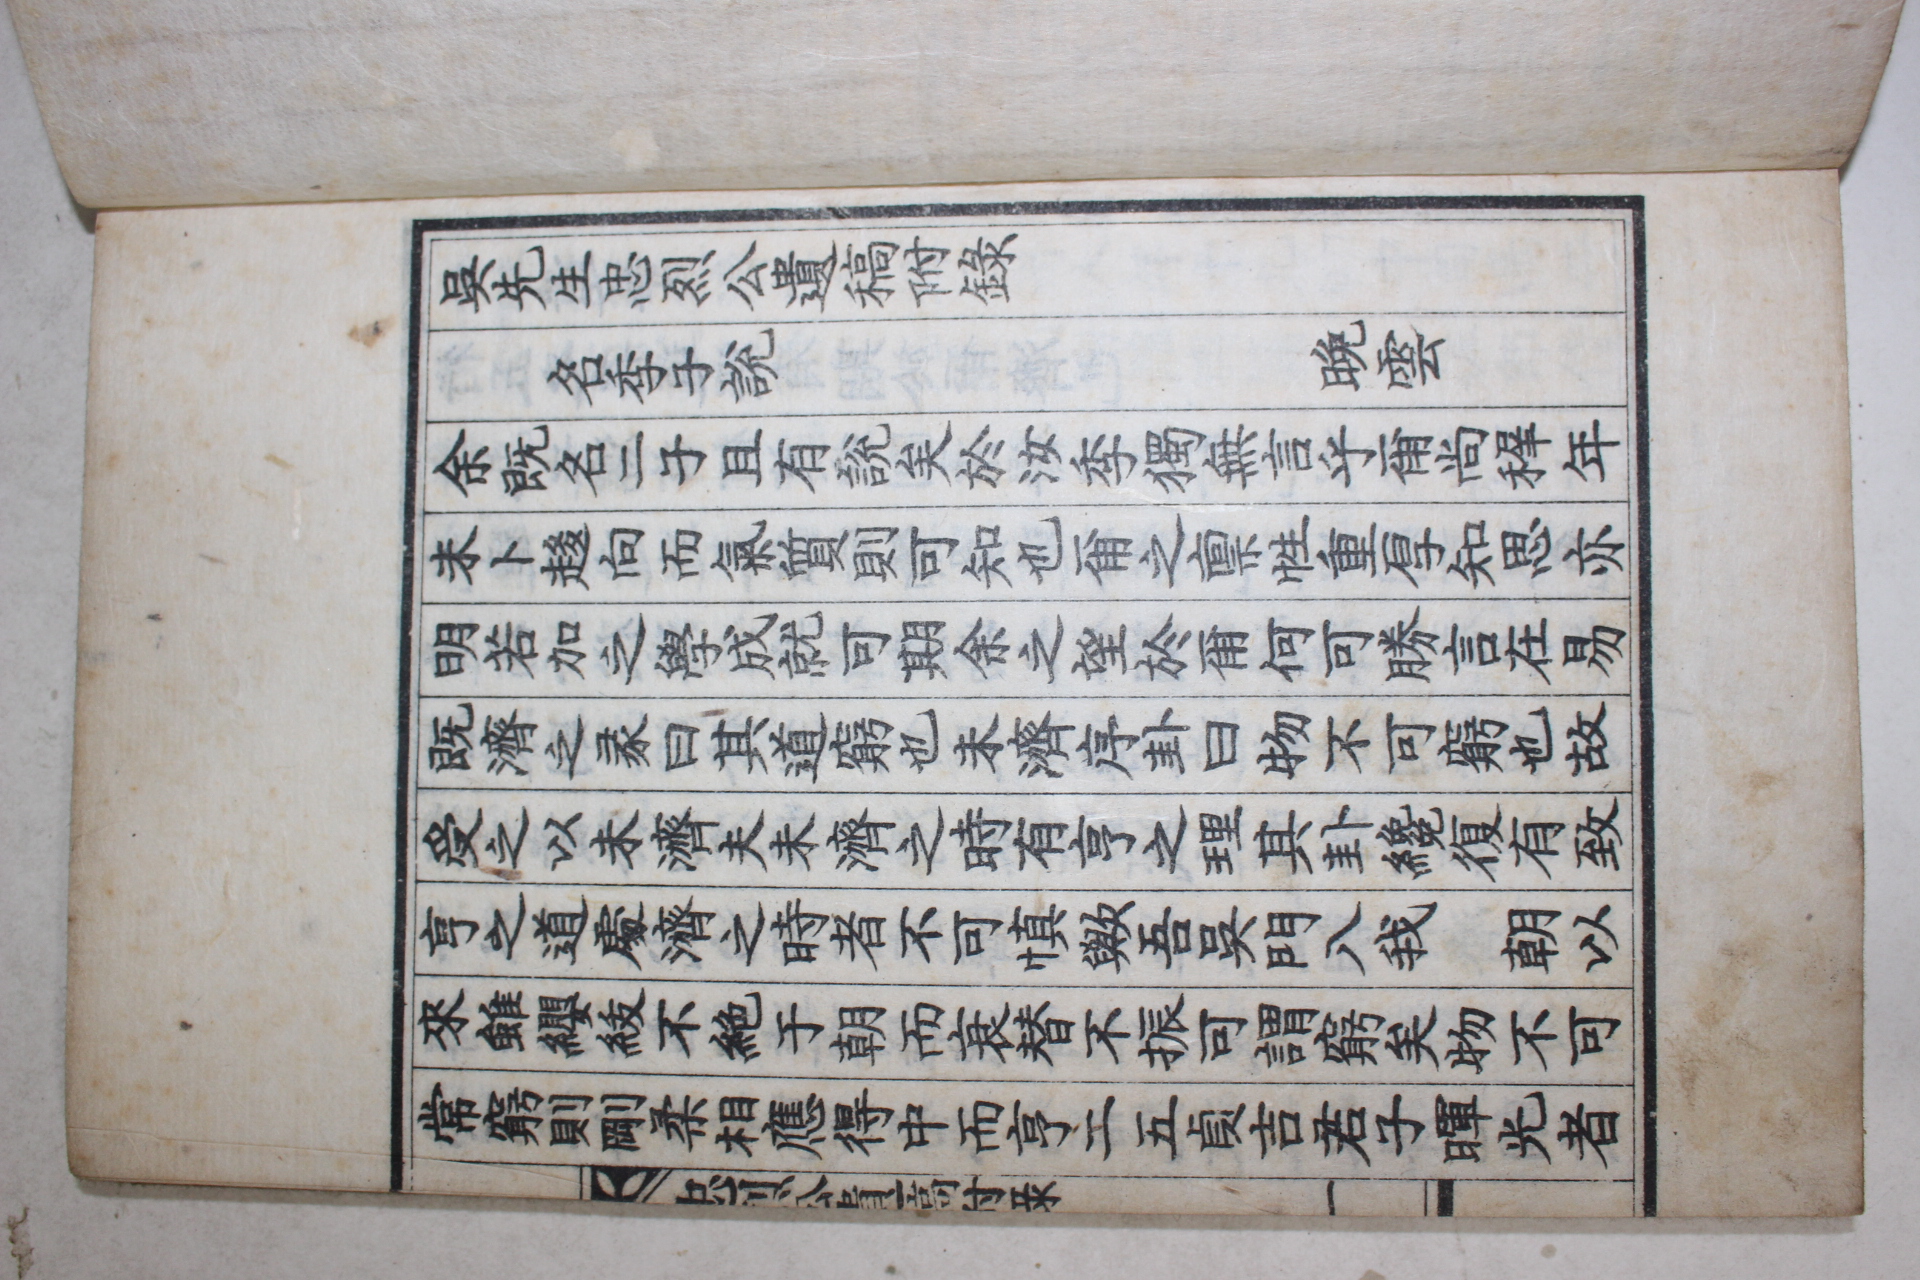 吳先生忠烈公遺稿附錄
名季子說 晩雲
余既名二子且有說矣於汝季獨無言乎爾尚稺年
未卜趍向而氣質則可知也爾之禀性重厚知思亦
明若加之學成就可期余之望於爾何可勝言在易
既濟之彖曰其道窮也未濟序卦曰物不可窮也故
受之以未濟夫未濟之時有亨之理其卦纔復有致
亨之道處濟之時者不可愼歟吾吳門入我 朝以
來雖纓紱不絶于朝而衰替不振可謂窮矣物不可
常窮則剛柔相應得中而亨二五貞吉君子暉光者
忠烈公遺稿附錄 一